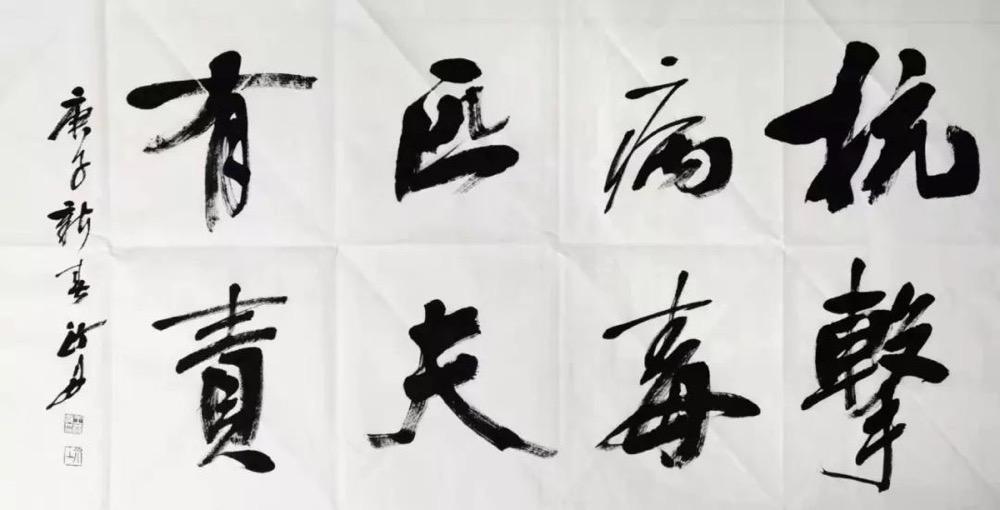 抗擊
病毒
匹夫
有責
庚子新春